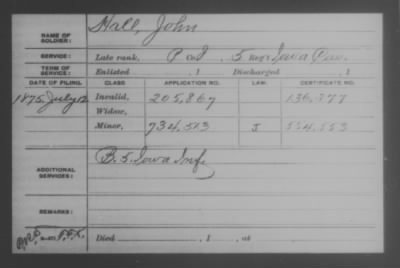 NAME OF SOLDIER: Hall, John
SERVICE: Late rank, P Co I, 5 Reg't Iowa
TERM OF SERVICE: Enlisted , 1 Discharged , 1
DATE OF FILING. CLASS. APPLICATION NO. LAW. CERTIFICATE NO.
1875, July 12 Invalid, 205,867 136,377
Widow,
Minor, 734,543 J 534,553
ADDITIONAL SERVICES: B. 5. Iowa Inf.
REMARKS:
Died , 1 , at